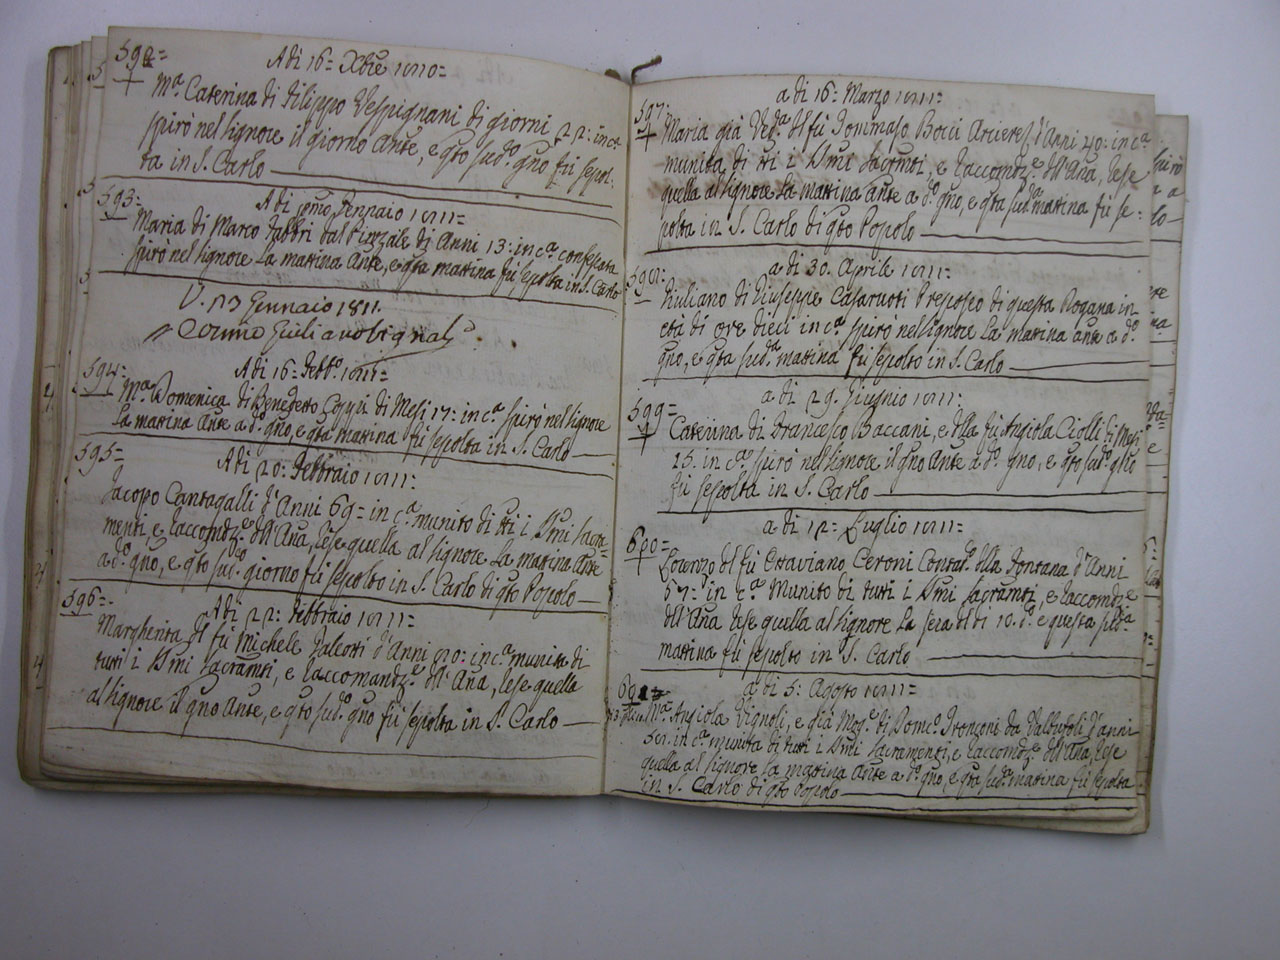 592=
A dì 16= Xbre 1810=
Mª Caterina di Filippo Vespignani di giorni 22: in cª
spirò nel Signore il giorno ante, e qto sudº gno fù sepol:
ta in S. Carlo
593=
A dì pmo Gennaio 1811=
Maria di Marco Fabbri dal Piazzale di Anni 13: in cª confessata
spirò nel Signore La mattina Ante, e qta mattina fù sepolta in S. Carlo
V. 13 Gennaio 1811.
594=
A dì 16= Febbº 1811=
Mª Domenica di Benedetto Coppi di Mesi 17: in cª spirò nel Signore
La mattina Ante a dº gno, e qta mattina fù sepolta in S. Carlo
595=
A dì 20: Febbraio 1811:
Jacopo Cantagalli d'Anni 69= in cª munito di tti i SSmi Sacra=
menti e raccomdzᵉ dll'Aña, rese quella al Signore La mattina Ante
a dº gno, e qto sudº giorno fù sepolto in S. Carlo di qto Popolo
596=
A dì 22: Febbraio 1811=
Margherita dl fù Michele Falcotti d'Anni 80: in cª munita di
tutti i SSmi Sacramti, e raccomandzᵉ dll'Aña, rese quella
al Signore il gno Ante, e qto sudº gno fù sepolta in S. Carlo
597:
a dì 16: Marzo 1811=
Maria già Vedª dl fù Tommaso Bocci d'Anni 40: in cª
munita di tti i SSmi Sacramti, e raccomdzᵉ dll'Aña, rese
quella al Signore La mattina ante a dº gno, e qta sudª mattina fù se=
polta in S. Carlo di qto Popolo
598:
a dì 30. Aprile 1811=
Giuliano di Giuseppe Casaruoti Preposto di questa Dogana in
età di ore dieci in cª spirò nel Signore La mattina ante a dº
gno, e qta sudª mattina fù sepolto in S. Carlo
599=
a dì 29. Giugno 1811=
Caterina di Francesco Baccani, e dlla fù Angiola Ciolli di Mesi
15. in cª spirò nel Signore il gno Ante a dº gno, e qto sudº gno
fù sepolta in S. Carlo
600=
a dì 12= Luglio 1811=
Lorenzo dl fù Ottaviano Ceroni Contadº dlla Fontana d'Anni
57= in cª Munito di tutti i SSmi Sacramti, e raccomdzᵉ
dll'Aña rese quella al Signore La sera dl dì 10. dº e questa sudª
mattina fù sepolto in S. Carlo
601=
a dì 5: Agosto 1811=
Mª Angiola Vignoli, e già Mogᵉ di Domcº Tronconi da Valbufoli d'anni
58. in cª munita di tutti i SSmi Sacramenti, e raccomdzᵉ dll'Aña, rese
quella al Signore La mattina Ante a dº gno, e qta sudª mattina fù sepolta
in S. Carlo di qto Popolo